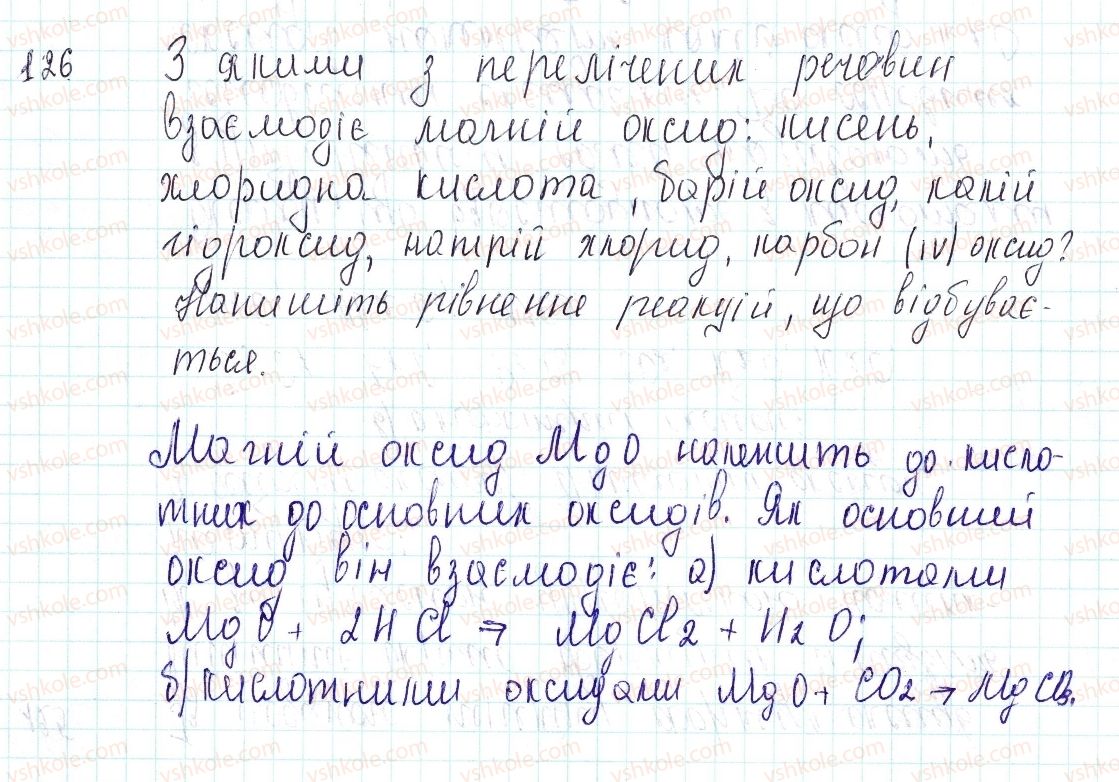 126 З якими з перелічених речовин
взаємодіє магній оксид: кисень,
хлоридна кислота, барій оксид, калій
гідроксид, натрій хлорид, карбон (IV) оксид?
Напишіть рівненне реакцій, що відбуває-
ться.
Магній оксид MgO належить до кисло-
тних до основних оксидів. Як основний
оксид він взаємодіє: а) кислотами
MgO + 2HCl → MgCl2 + H2O;
б) кислотними оксидами MgO + CO2 → MgCO3.